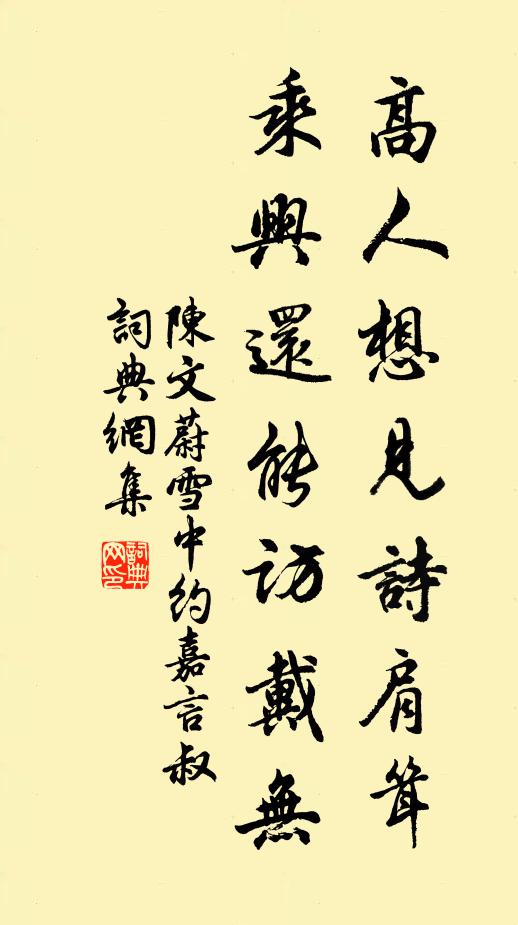 高人想見詩肩聳
乘興還能訪戴無
陳文蔚雪中約嘉言叔
詞典網集
詞典
网印